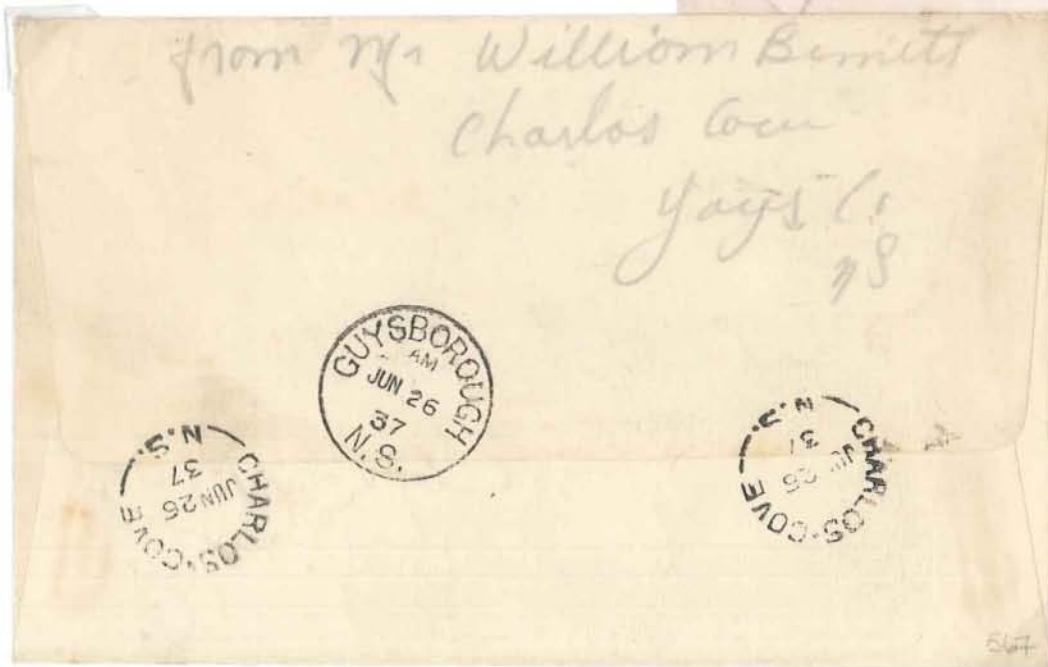 from Mr William Bennett
Charlos Cove
Guys Co
NS
GUYSBOROUGH
AM
JUN 26
37
N.S.
CHARLOS-COVE
JUN 26
37
N.S.
CHARLOS-COVE
26
37
N.S.